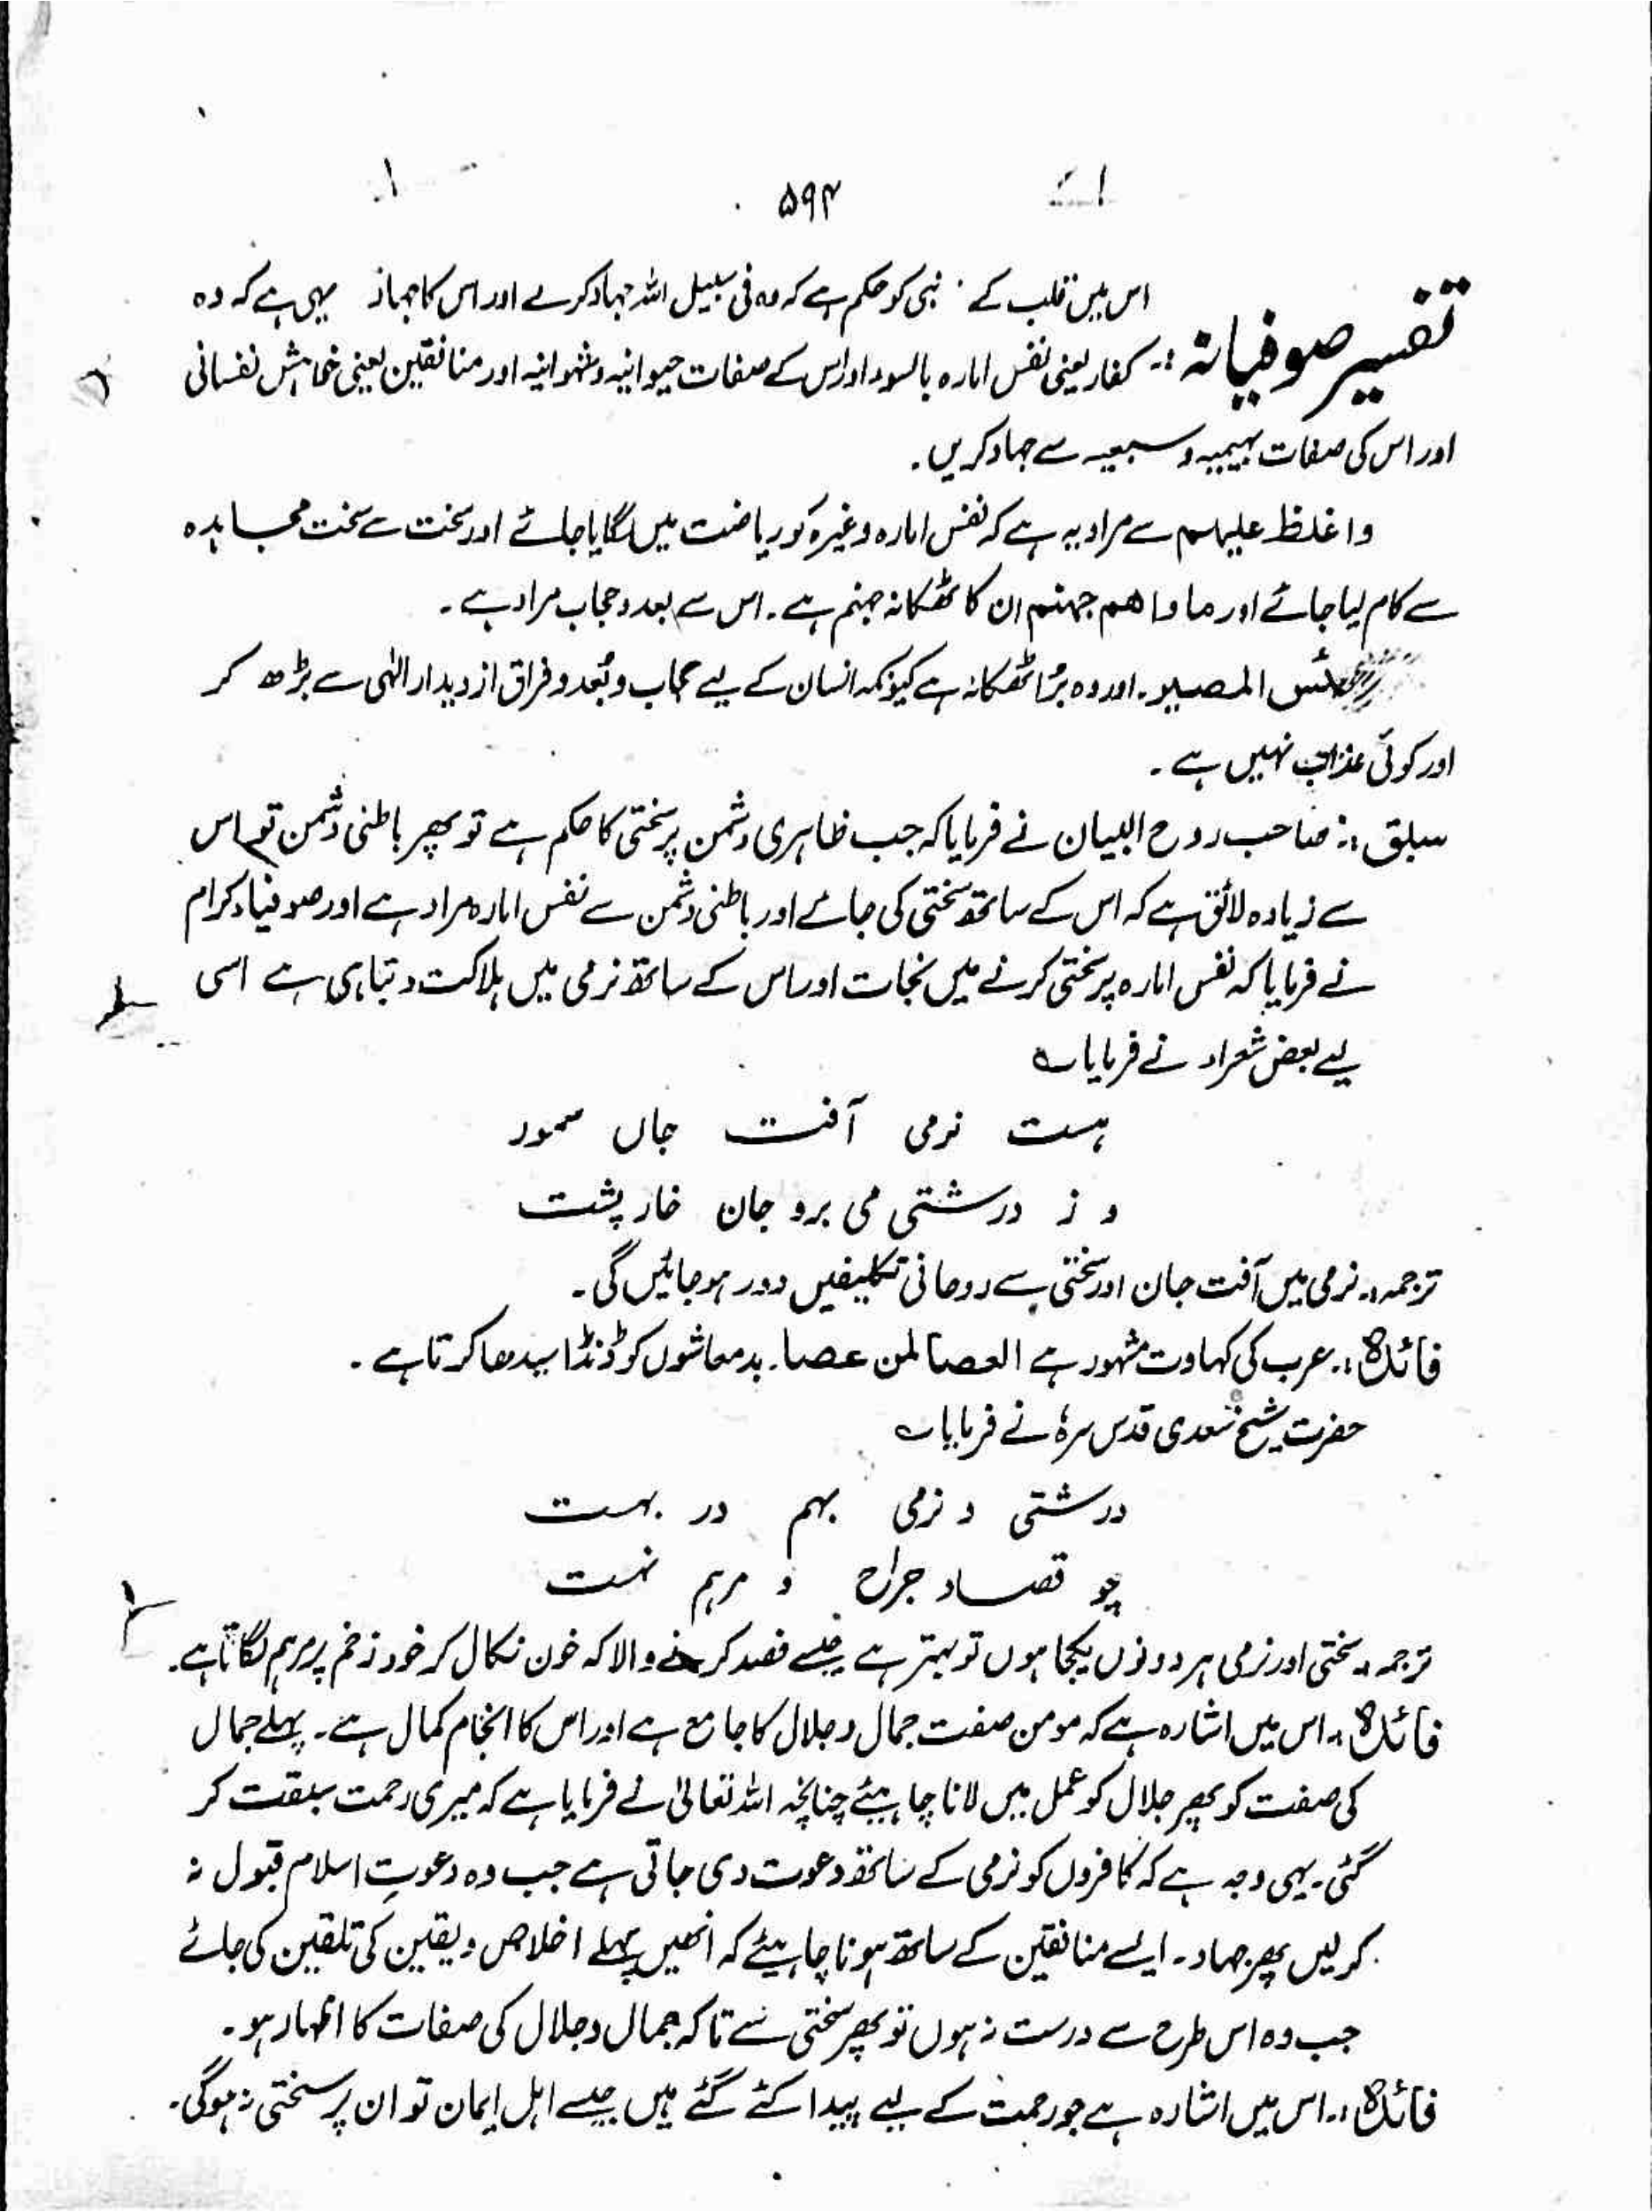 ۵۹۴
تفسیر صوفیانہ :۔ اس میں قلب کے نبی کو حکم ہے کہ وہ فی سبیل اللہ جہاد کرے اور اس کا جہاد یہی ہے کہ وہ
کفار یعنی نفس امارہ بالسوء اور اس کے صفات حیوانیہ و شہوانیہ اور منافقین یعنی خواہش نفسانی
اور اس کی صفات بہیمیہ و سبعیہ سے جہاد کریں۔
واغلظ علیہم سے مراد یہ ہے کہ نفس امارہ وغیرہ کو ریاضت میں لگایا جائے اور سخت سے سخت مجاہدہ
سے کام لیا جائے اور ماواھم جہنم ان کا ٹھکانہ جہنم ہے۔ اس سے بعد و حجاب مراد ہے۔
بئس المصیر۔ اور وہ بُرا ٹھکانہ ہے کیونکہ انسان کے لیے حجاب و بُعد و فراق از دیدار الٰہی سے بڑھ کر
اور کوئی عذاب نہیں ہے۔
سبق :۔ صاحب روح البیان نے فرمایا کہ جب ظاہری دشمن پر سختی کا حکم ہے تو پھر باطنی دشمن تو اس
سے زیادہ لائق ہے کہ اس کے ساتھ سختی کی جائے اور باطنی دشمن سے نفس امارہ مراد ہے اور صوفیاء کرام
نے فرمایا کہ نفس امارہ پر سختی کرنے میں نجات اور اس کے ساتھ نرمی میں ہلاکت و تباہی ہے اسی
لیے بعض شعراء نے فرمایا ؎
ہست نرمی آفت جاں سمور
و ز درشتی می برد جان خار پشت
ترجمہ :۔ نرمی میں آفت جان اور سختی سے روحانی تکلیفیں دور ہو جائیں گی۔
فائدہ :۔ عرب کی کہاوت مشہور ہے العصا لمن عصا۔ بدمعاشوں کو ڈنڈا سیدھا کرتا ہے۔
حضرت شیخ سعدی قدس سرہٗ نے فرمایا ؎
درشتی و نرمی بہم در بہست
چو قصاد جراح و مرہم نہست
ترجمہ :۔ سختی اور نرمی ہر دونوں یکجا ہوں تو بہتر ہے جیسے فصد کرنے والا کہ خون نکال کر خود زخم پر مرہم لگاتا ہے۔
فائدہ :۔ اس میں اشارہ ہے کہ مومن صفت جمال و جلال کا جامع ہے اور اس کا انجام کمال ہے۔ پہلے جمال
کی صفت کو پھر جلال کو عمل میں لانا چاہیئے چنانچہ اللہ تعالیٰ نے فرمایا ہے کہ میری رحمت سبقت کر
گئی۔ یہی وجہ ہے کہ کافروں کو نرمی کے ساتھ دعوت دی جاتی ہے جب وہ دعوتِ اسلام قبول نہ
کرلیں پھر جہاد۔ ایسے منافقین کے ساتھ ہونا چاہیئے کہ انھیں پہلے اخلاص و یقین کی تلقین کی جائے
جب وہ اس طرح سے درست نہ ہوں تو پھر سختی سے تاکہ جمال و جلال کی صفات کا اظہار ہو۔
فائدہ :۔ اس میں اشارہ ہے جو رحمت کے لیے پیدا کئے گئے ہیں جیسے اہل ایمان تو ان پر سختی نہ ہوگی۔